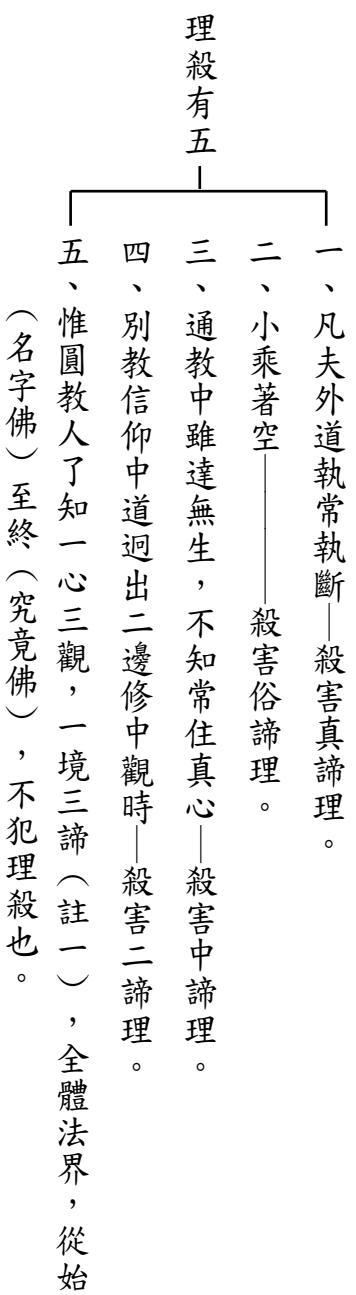 理殺有五
一、凡夫外道執常執斷—殺害真諦理。
二、小乘著空————殺害俗諦理。
三、通教中雖達無生，不知常住真心—殺害中諦理。
四、別教信仰中道迥出二邊修中觀時—殺害二諦理。
五、惟圓教人了知一心三觀，一境三諦（註一），全體法界，從始
（名字佛）至終（究竟佛），不犯理殺也。